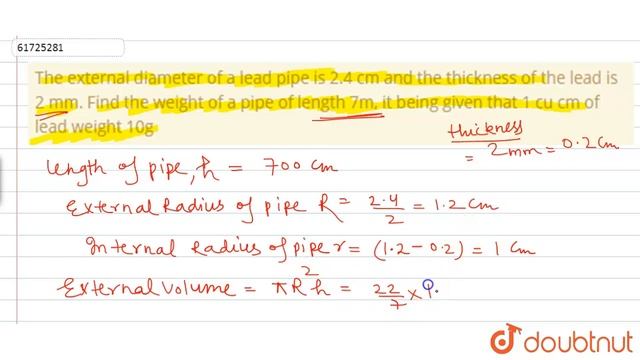 61725281
The external diameter of a lead pipe is 2.4 cm and the thickness of the lead is
2 mm. Find the weight of a pipe of length 7m, it being given that 1 cu cm of
lead weight 10g
thickness
= 2mm = 0.2 cm
length of pipe, h = 700 cm
External Radius of pipe R = 2.4/2 = 1.2 cm
Internal Radius of pipe r = (1.2 - 0.2) = 1 cm
External volume = πR²h = 22/7 × 1.
doubtnut